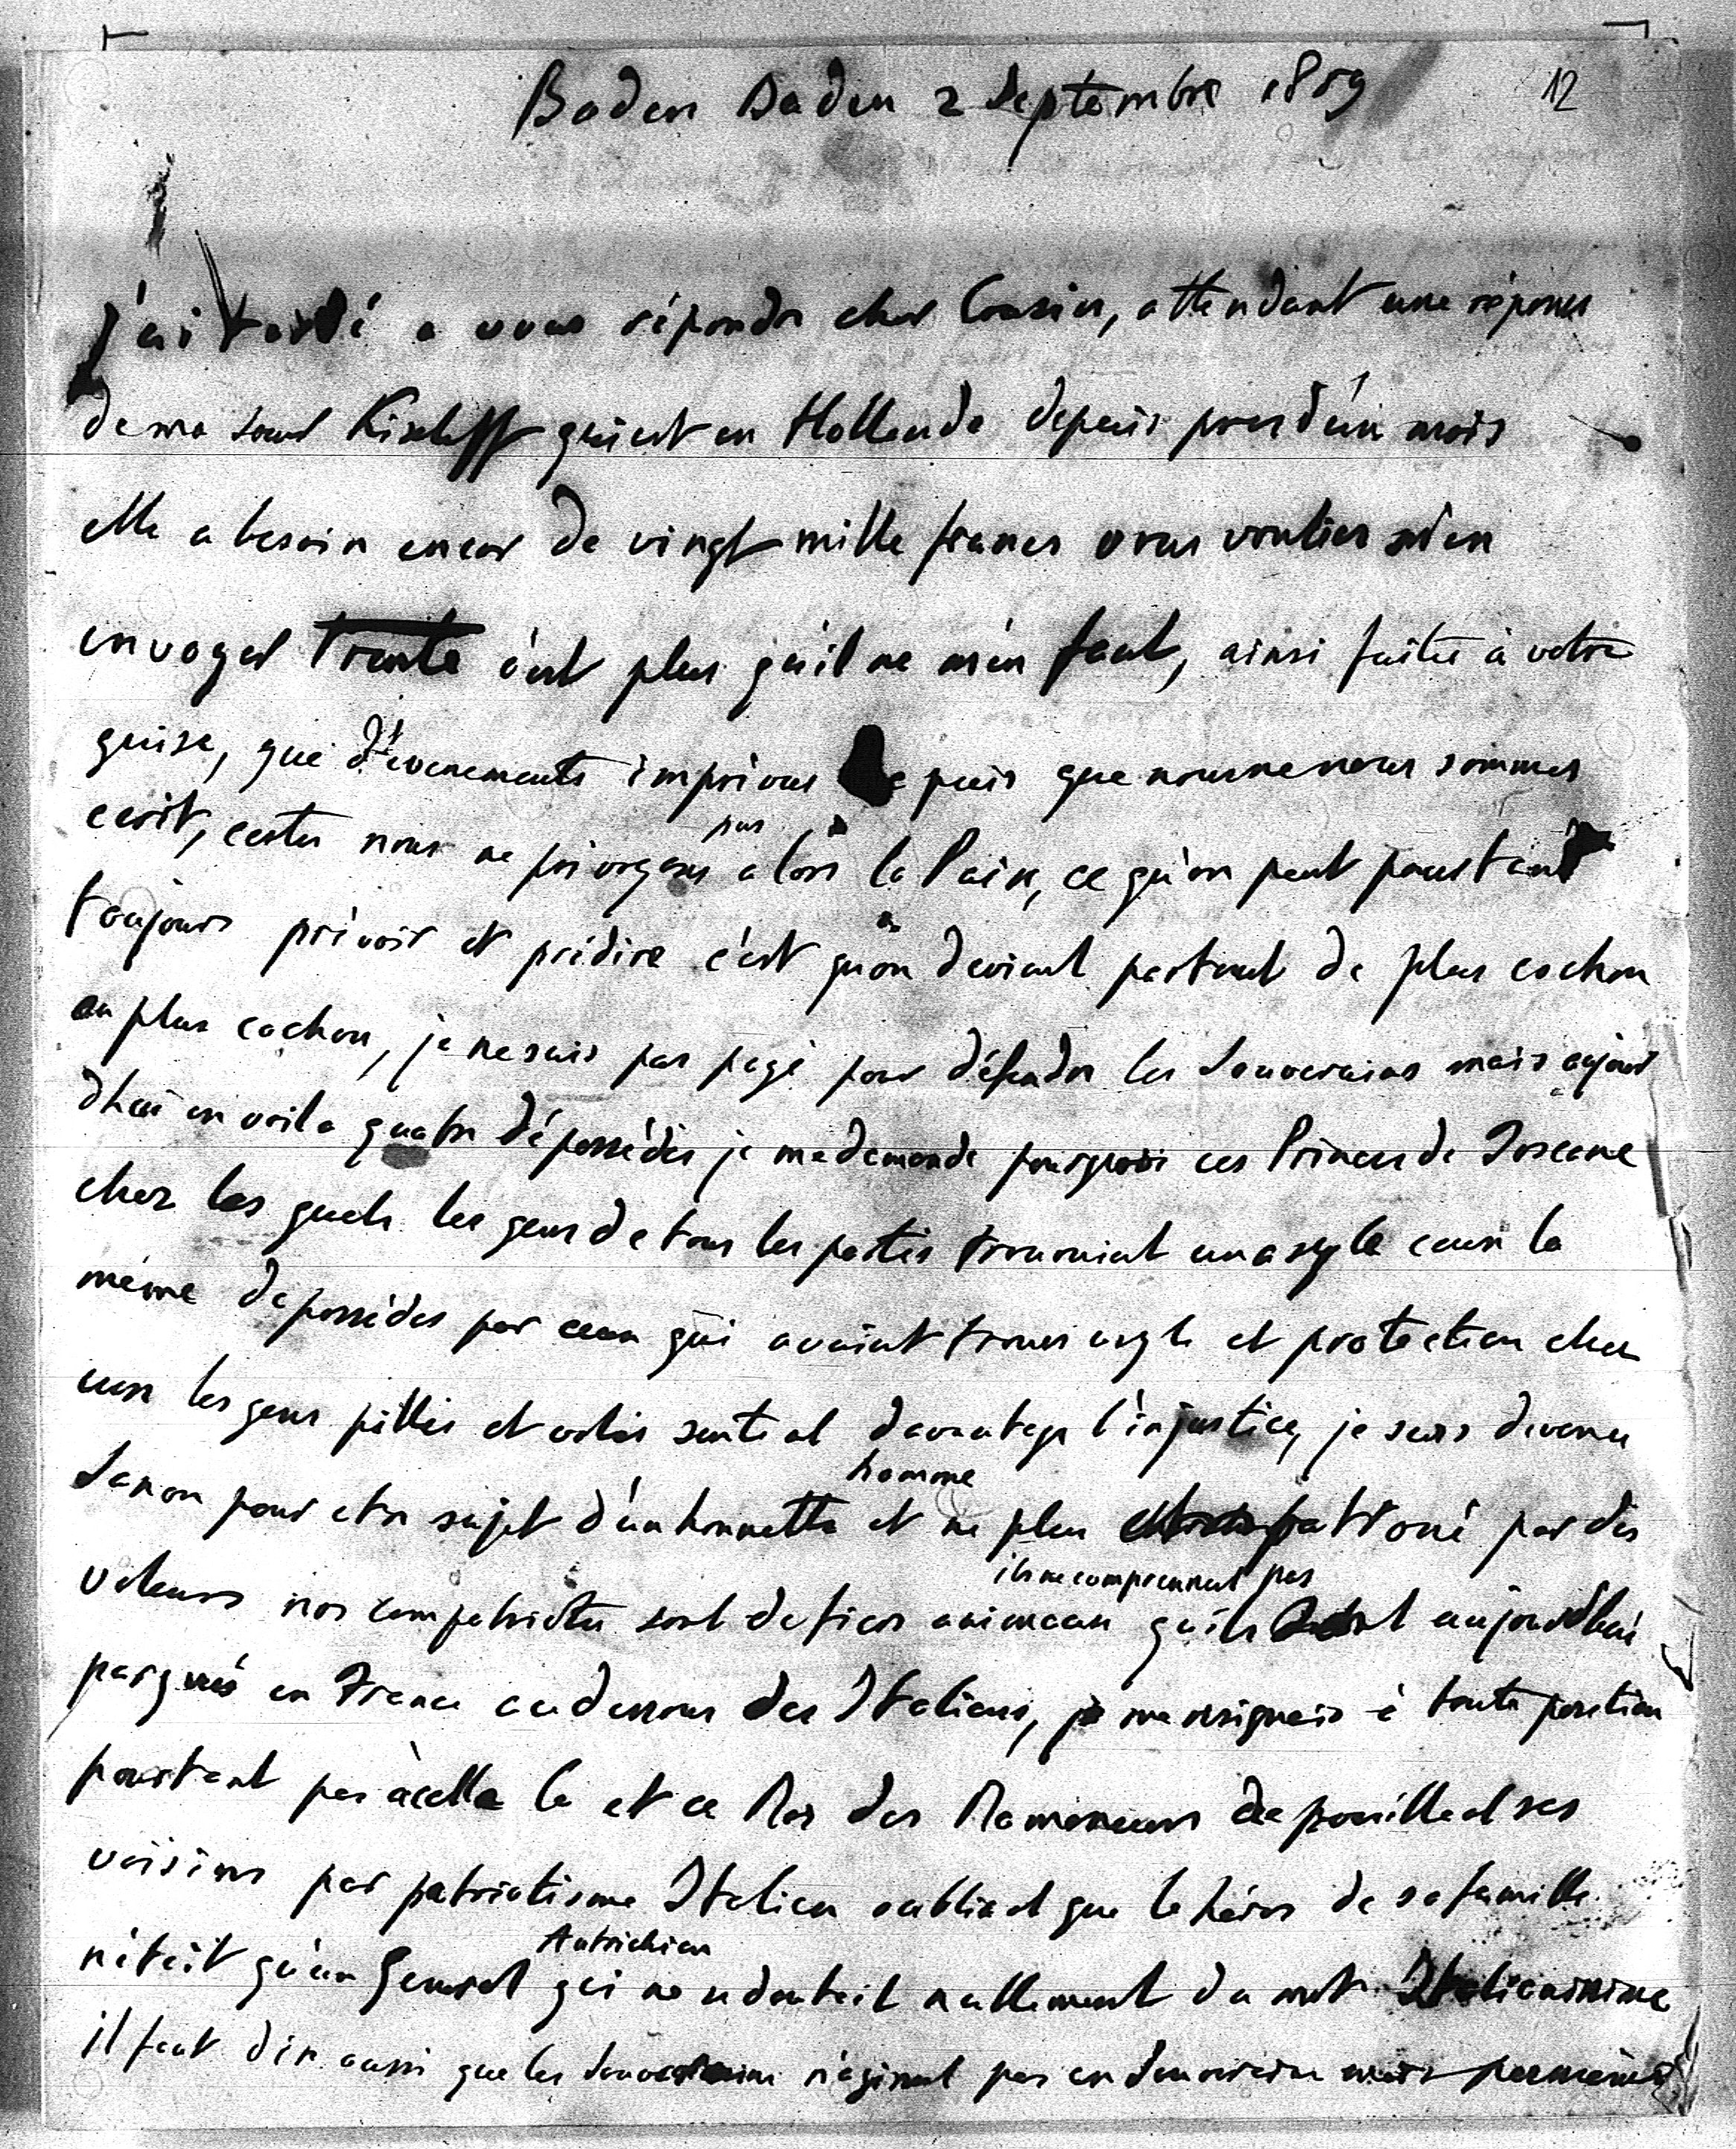 12
Baden Baden 2 Septembre 1859
j'ai tardé a vous répondre cher Cousin, attendant une réponse
de ma soeur Kiseleff qui est en Hollande depuis pres d'un mois
elle a besoin encor de vingt mille francs vous vouliez m'en
envoyer Trente c'est plus qu'il ne m'en faut, ainsi faites à votre
guise, que d'évenements imprévus depuis que nous ne nous sommes
ecrit, certes nous ne prévoyons pas alors la Paix, ce qu'on peut pourtant
toujours prévoir et prédire c'est qu'on devient partout de plus cochon
en plus cochon, je ne suis pas payé pour défendre les Souverains mais aujour
dhui en voila quatre dépossédés je me demande pourquoi ces Princes de Toscane
chez les quels les gens de tous les partis trouvaient un asyle ceux la
même depossédés par ceux qui avaient trouvé asyle et protection chez
eux les gens pillés et volés sentent davantage l'injustice, je suis devenu
pour etre sujet d'un honnette homme et ne plus patroné par des
voleurs nos compatriotes sont de fiers animaux ils ne comprennent pas qu'ils sont aujourdhui
parqués en France au dessous des Italiens, je me resignais à toute position
pourtant pas à celle la et ce Roi des Ramoneurs depouillant ses
voisins par patriotisme Italien oubliant que le héros de sa famille
n'était qu'un General Autrichien qui ne se doutait nullement du mot
il faut dire aussi que les Souverains n'agissent pas en Souverains mais